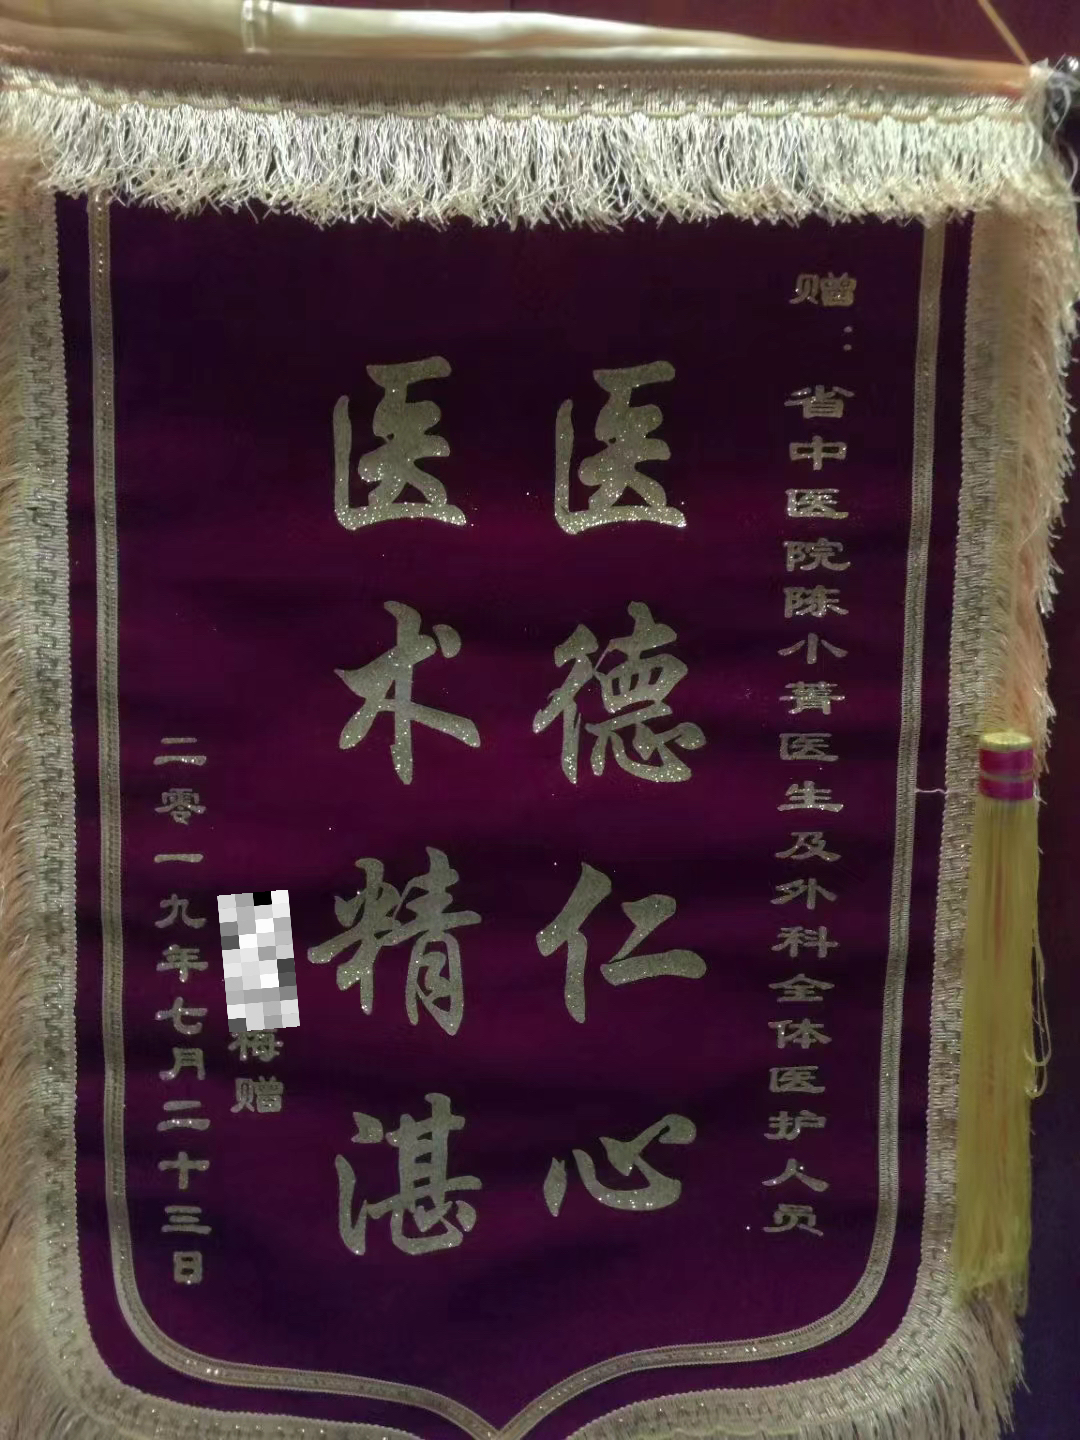 赠：省中医院陈小菁医生及外科全体医护人员
医德仁心
医术精湛
梅赠
二零一九年七月二十三日